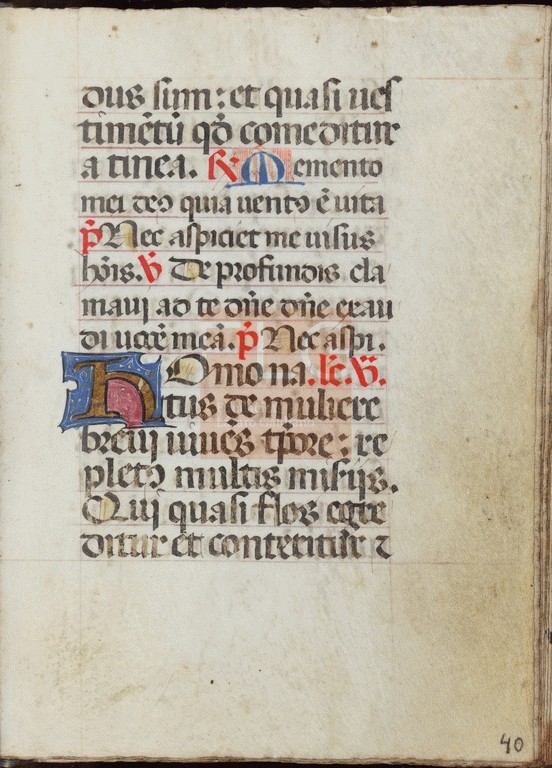 dus sum: et quasi ves
timētū qđ comeditur
a tinea. ℟ Memento
mei deꝰ quia ventꝰ ē vita
p̄ Nec aspiciet me visus
hōis. ℣ De profundis cla
maui ad te dn̄e dn̄e exau
di uocē meā. p̄ Nec aspi.
Homo na. lc̄. ℣.
tus de muliere
breui viuēs tp̄ore: re
pletꝰ multis misijs.
Qui quasi flos egre
ditur et conteritur ⁊
40